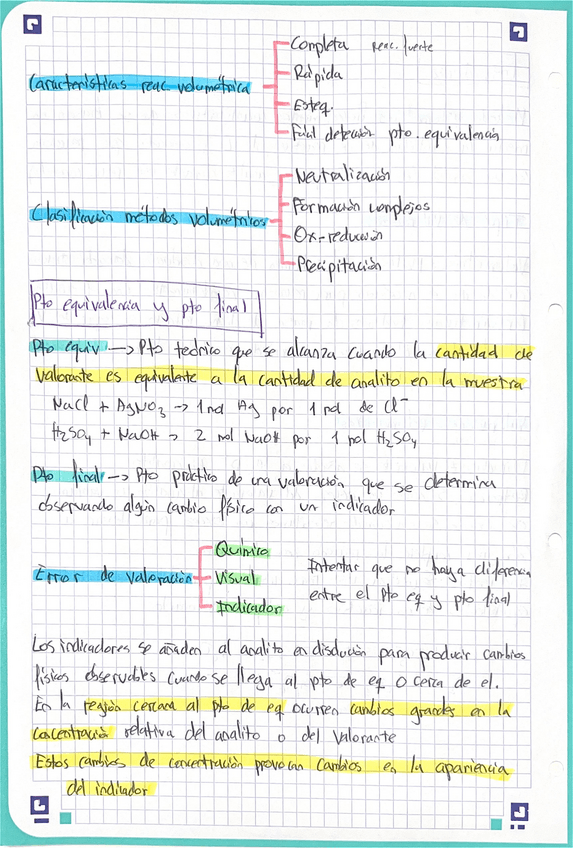 Completa reac. fuerte
Rápida
Características reac volumétrica
Esteq.
Fácil detección pto. equivalencia
Neutralización
Formación complejos
Clasificación métodos volumétricos
Ox-reducción
Precipitación
Pto equivalencia y pto final
Pto equiv → Pto teórico que se alcanza cuando la cantidad de
valorante es equivalente a la cantidad de analito en la muestra
NaCl + AgNO₃ → 1 mol Ag por 1 mol de Cl⁻
H₂SO₄ + NaOH → 2 mol NaOH por 1 mol H₂SO₄
Pto final → Pto práctico de una valoración que se determina
observando algún cambio físico con un indicador
Químico
Error de valoración
Visual
Indicador
Intentar que no haya diferencia
entre el pto eq y pto final
Los indicadores se añaden al analito en disolución para producir cambios
físicos observables cuando se llega al pto de eq o cerca de el.
En la región cercana al pto de eq ocurren cambios grandes en la
concentración relativa del analito o del valorante
Estos cambios de concentración provocan cambios en la apariencia
del indicador